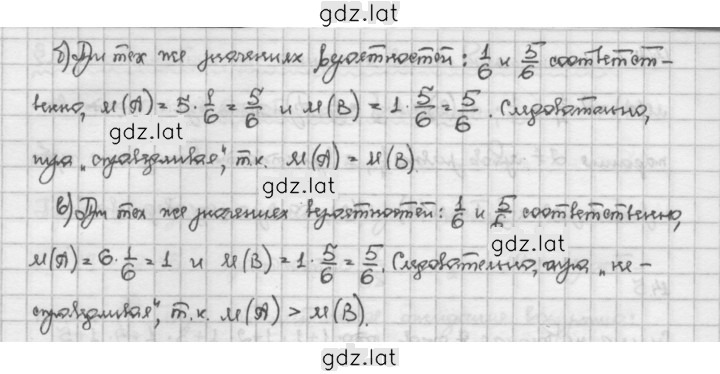 gdz.lat
б) При тех же значениях вероятностей: 1/6 и 5/6 соответст-
венно, M(A) = 5·1/6 = 5/6 и M(B) = 1·5/6 = 5/6. Следовательно,
gdz.lat
игра „справедливая", т.к. M(A) = M(B).
gdz.lat
в) При тех же значениях вероятностей: 1/6 и 5/6 соответственно,
gdz.lat
M(A) = 6·1/6 = 1 и M(B) = 1·5/6 = 5/6. Следовательно, игра „не-
справедливая", т.к. M(A) > M(B).
gdz.lat